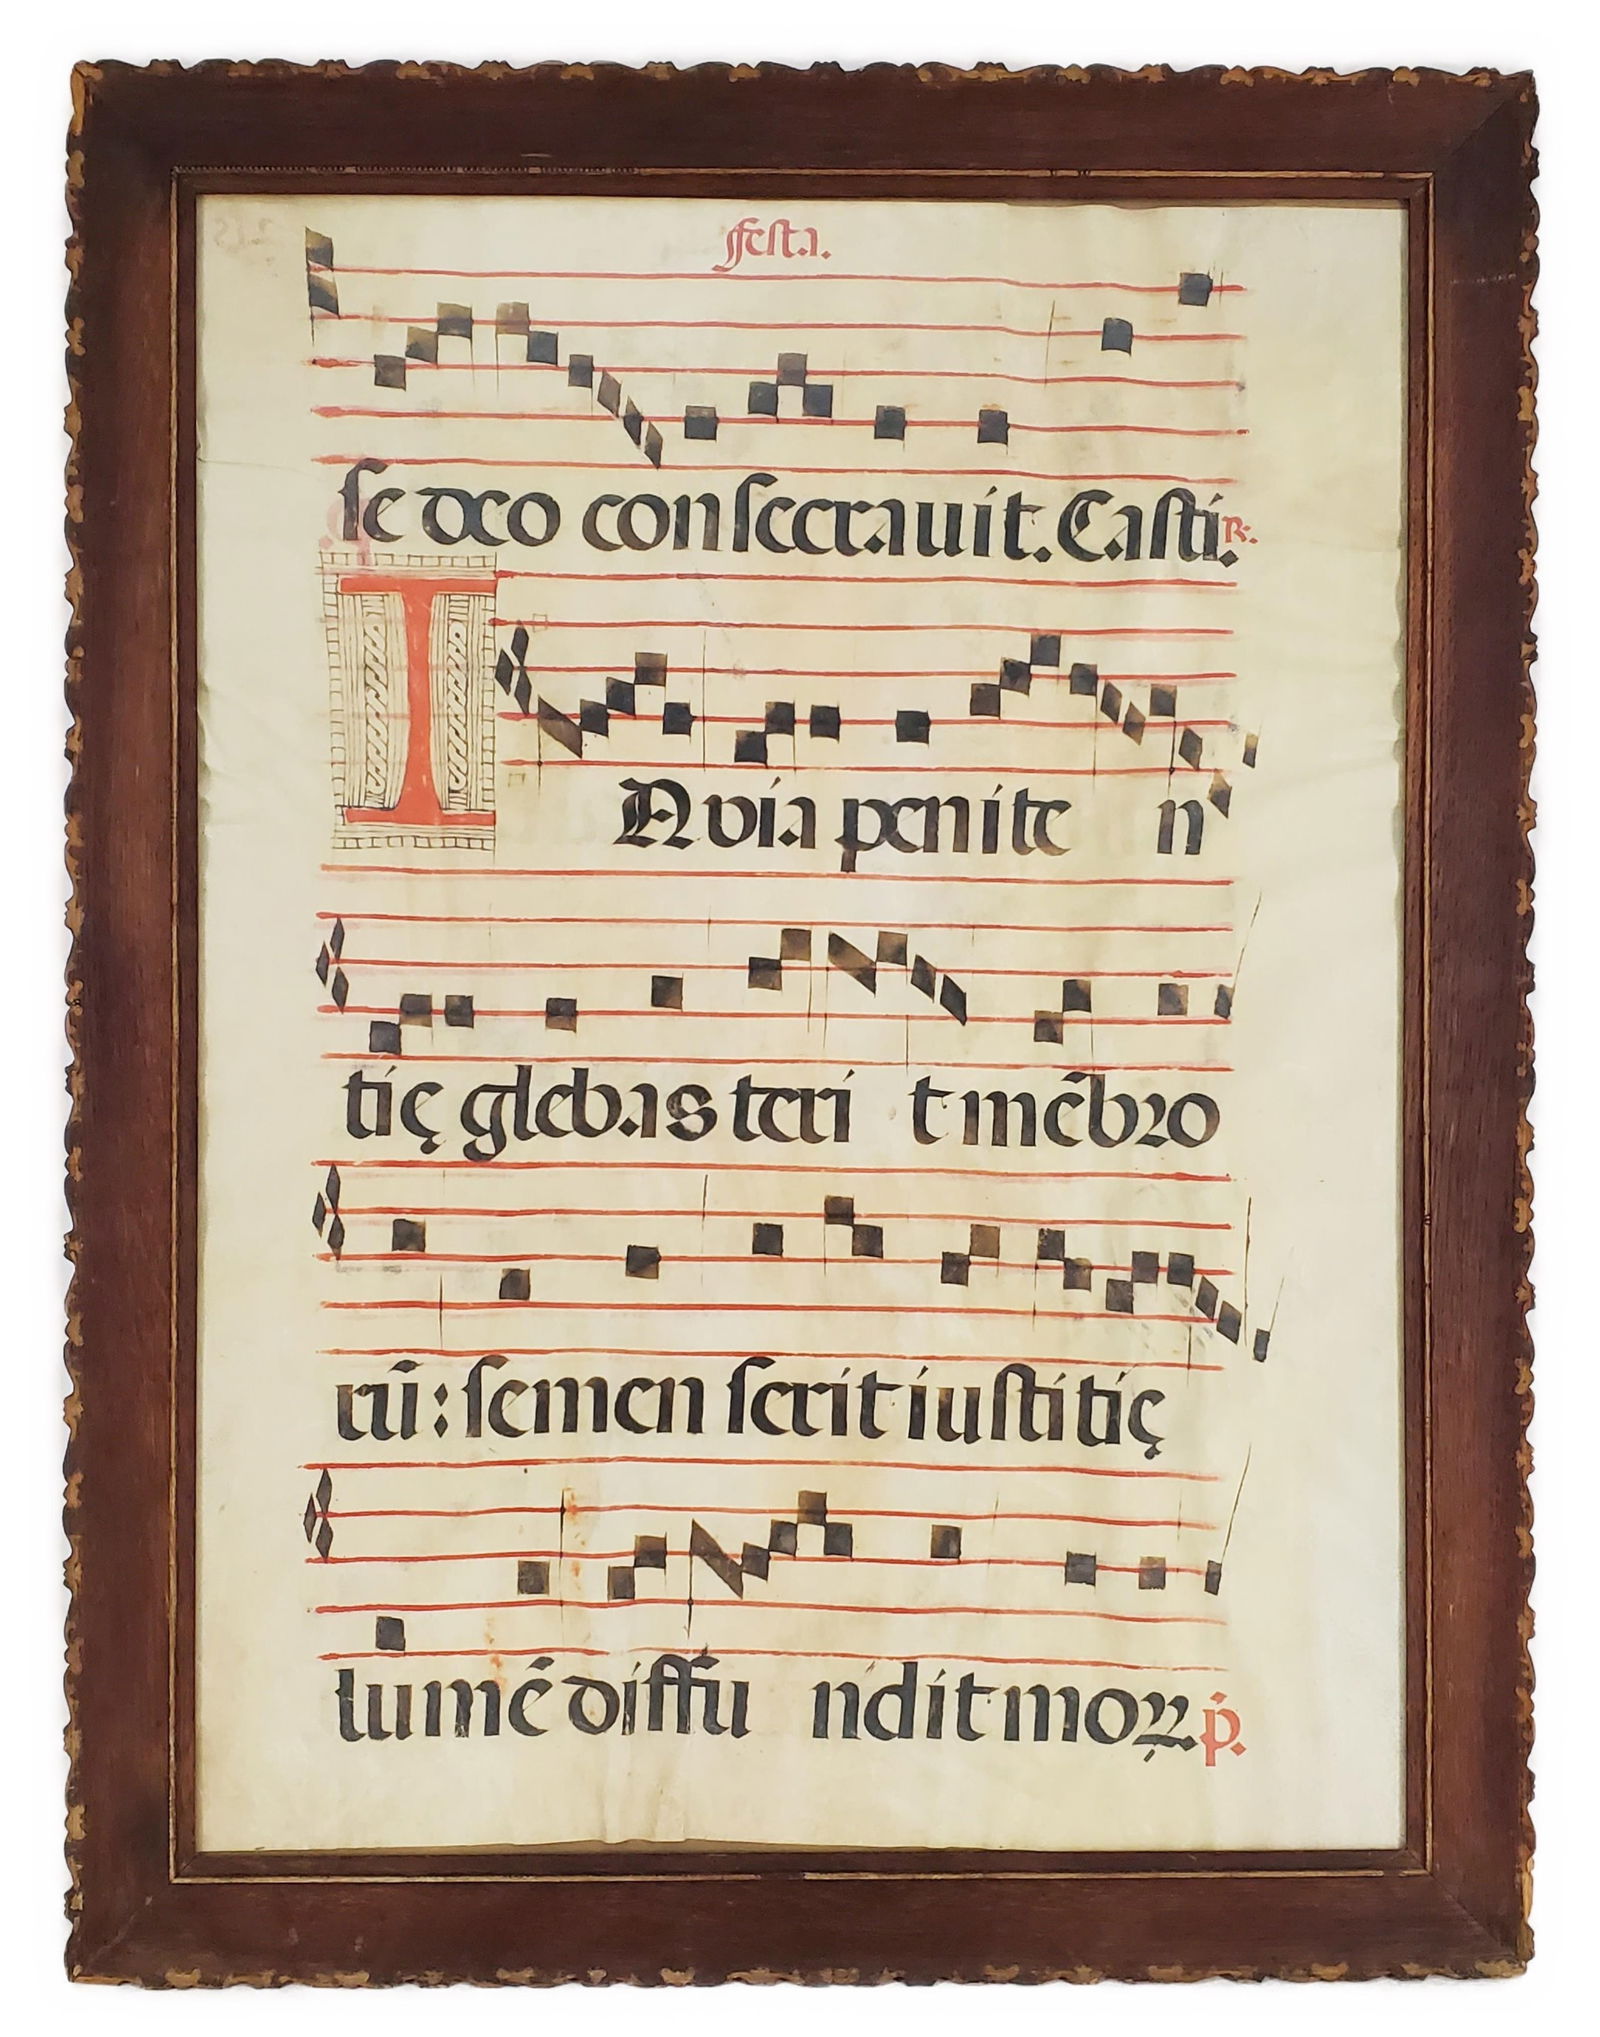 ffest.1.
se deo consecrauit. Casti. R.
IN via penite n
tię glebas teri t mẽbro
rũ: semen serit iustitię
lumẽ diffu ndit moꝝ. p̃.